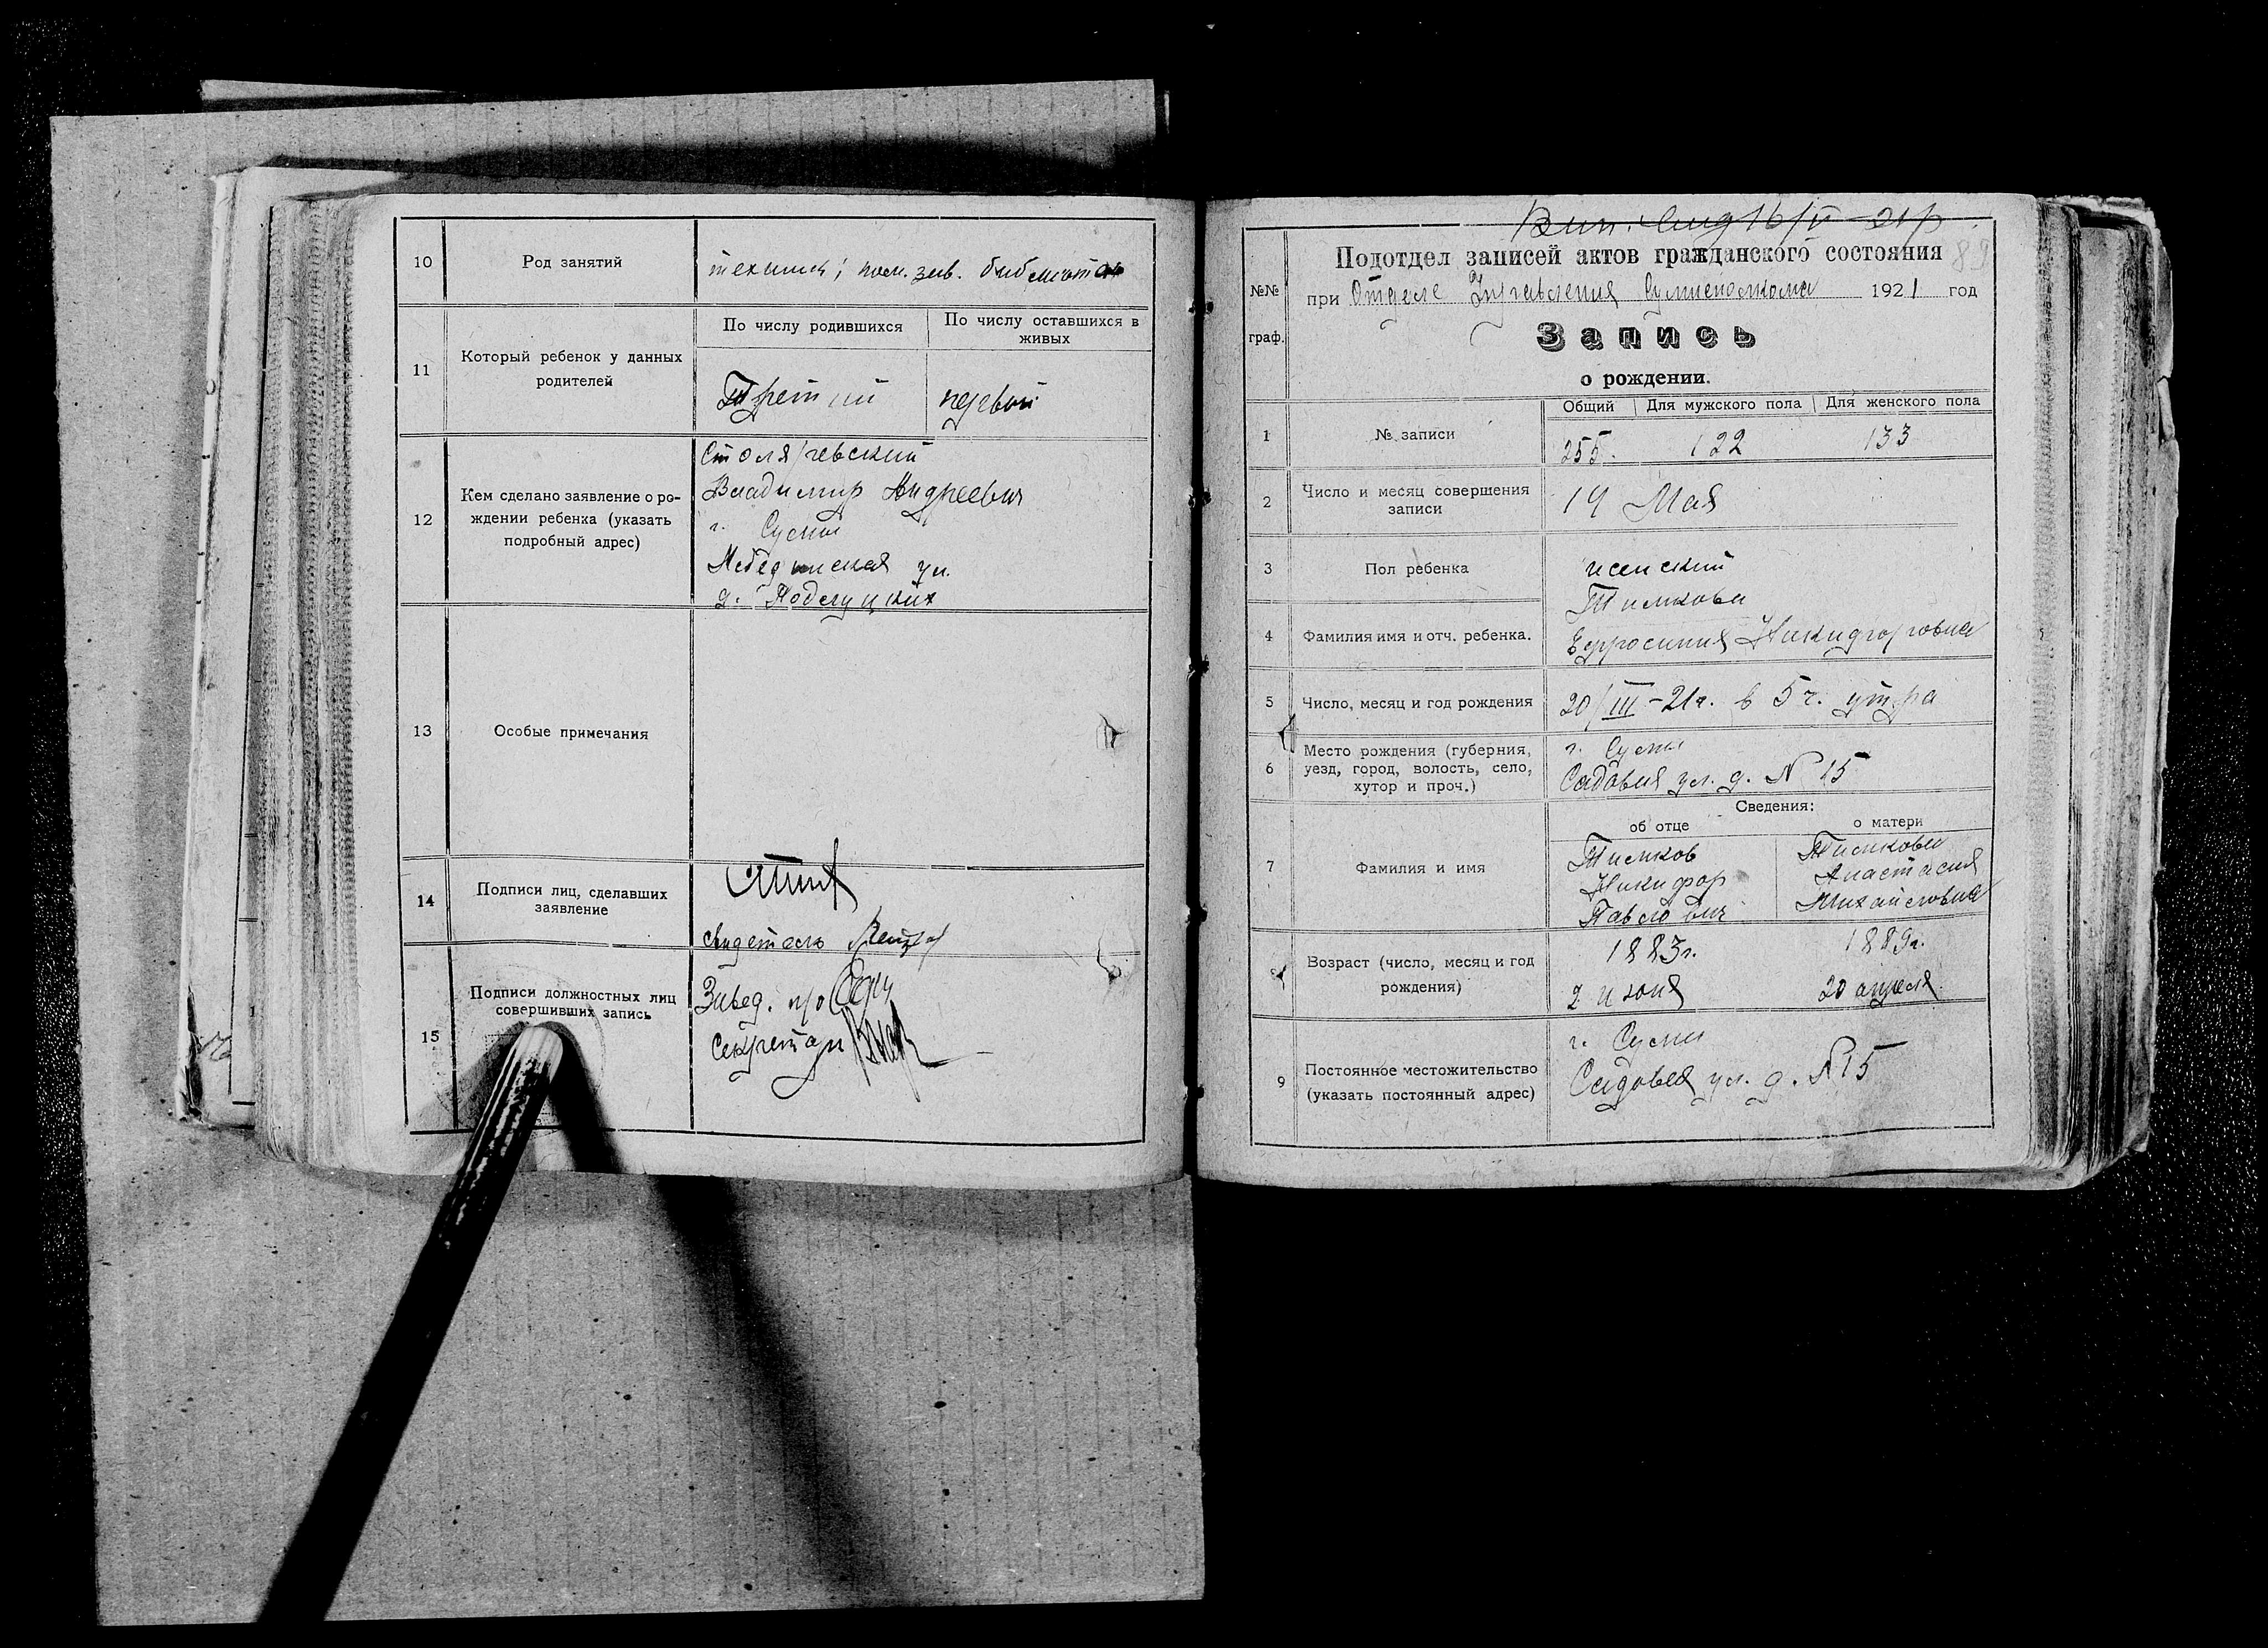 10
Род занятий
техник; пом. зав. библиотек
11
Который ребенок у данных
родителей
По числу родившихся
По числу оставшихся в
живых
Третий
первый
12
Кем сделано заявление о ро-
ждении ребенка (указать
подробный адрес)
Столяревский
Владимир Андреевич
г. Сумы
Лебединская ул.
д.
13
Особые примечания
14
Подписи лиц, сделавших
заявление
свидетель
15
Подписи должностных лиц
совершивших запись
Завед. п/о
Секретарь
16/V 21
Подотдел записей актов гражданского состояния
89
№№
граф.
при Отделе Управления Сумисполкома 1921 год
Запись
о рождении.
1
№ записи
Общий
Для мужского пола
Для женского пола
255.
122
133
2
Число и месяц совершения
записи
19 Мая
3
Пол ребенка
женский
4
Фамилия имя и отч. ребенка.
Тимкова
Ефросиния Никифоровна
5
Число, месяц и год рождения
20/III-21г. в 5 ч. утра
6
Место рождения (губерния,
уезд, город, волость, село,
хутор и проч.)
г. Сумы
Садовая ул. д. № 15
Сведения:
об отце
о матери
7
Фамилия и имя
Тимков
Никифор
Павлович
Тимкова
Анастасия
Михайловна
8
Возраст (число, месяц и год
рождения)
1883г.
2 июня
1889г.
20 апреля
9
Постоянное местожительство
(указать постоянный адрес)
г. Сумы
Садовая ул. д. № 15